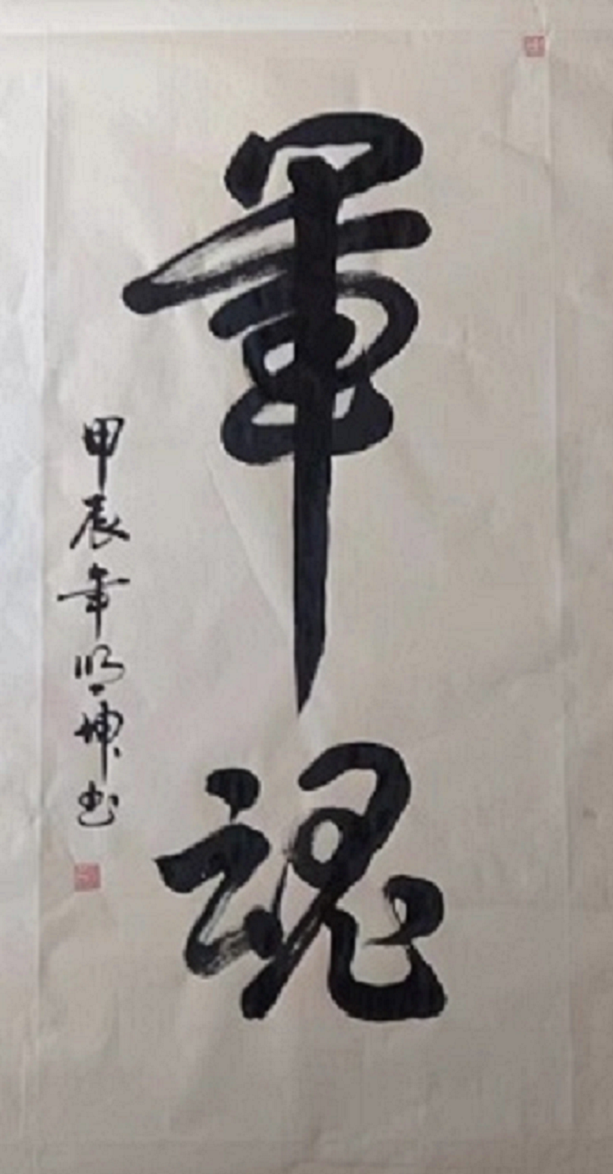 軍魂
甲辰年明坤书